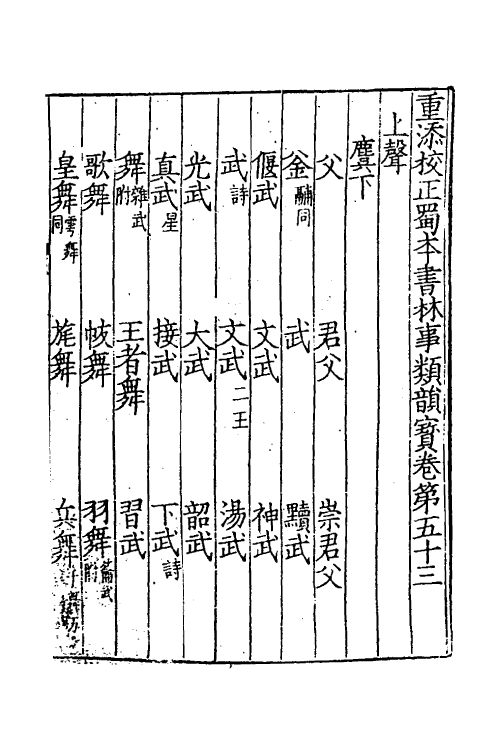 重添校正蜀本書林事類韻寶卷第五十三
上聲
麌下
父 君父 崇君父
釡 鬴同 武 黷武
偃武 文武 神武
武 詩 文武 二王 湯武
光武 大武 韶武
真武 星 接武 下武 詩
舞 雜武附 王者舞 習武
歌舞 帗舞 羽舞 籥武附
皇舞 雩舞同 旄舞 兵舞